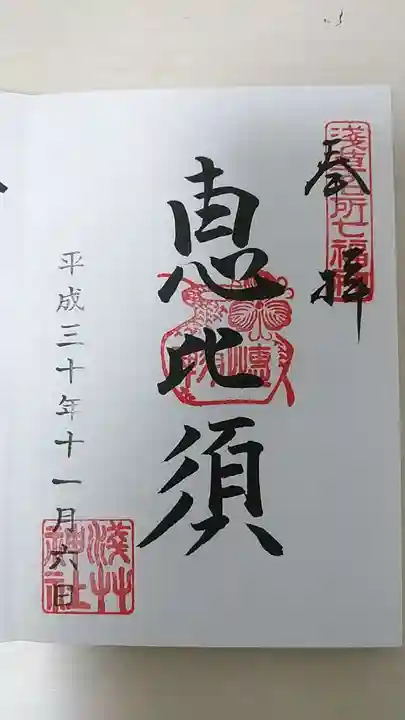 奉拝
淺草名所七福
恵比須
平成三十年十一月六日
淺草神社